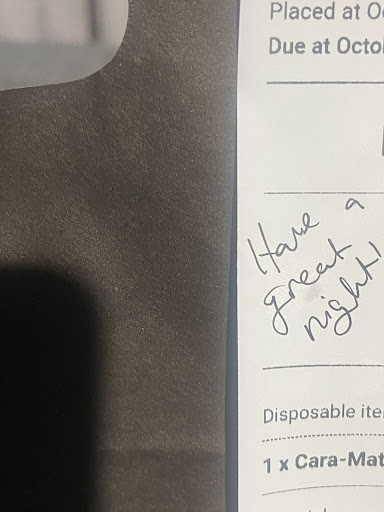 Placed at O
Due at Octo
Have a
great
night!
Disposable ite
1 x Cara-Mat